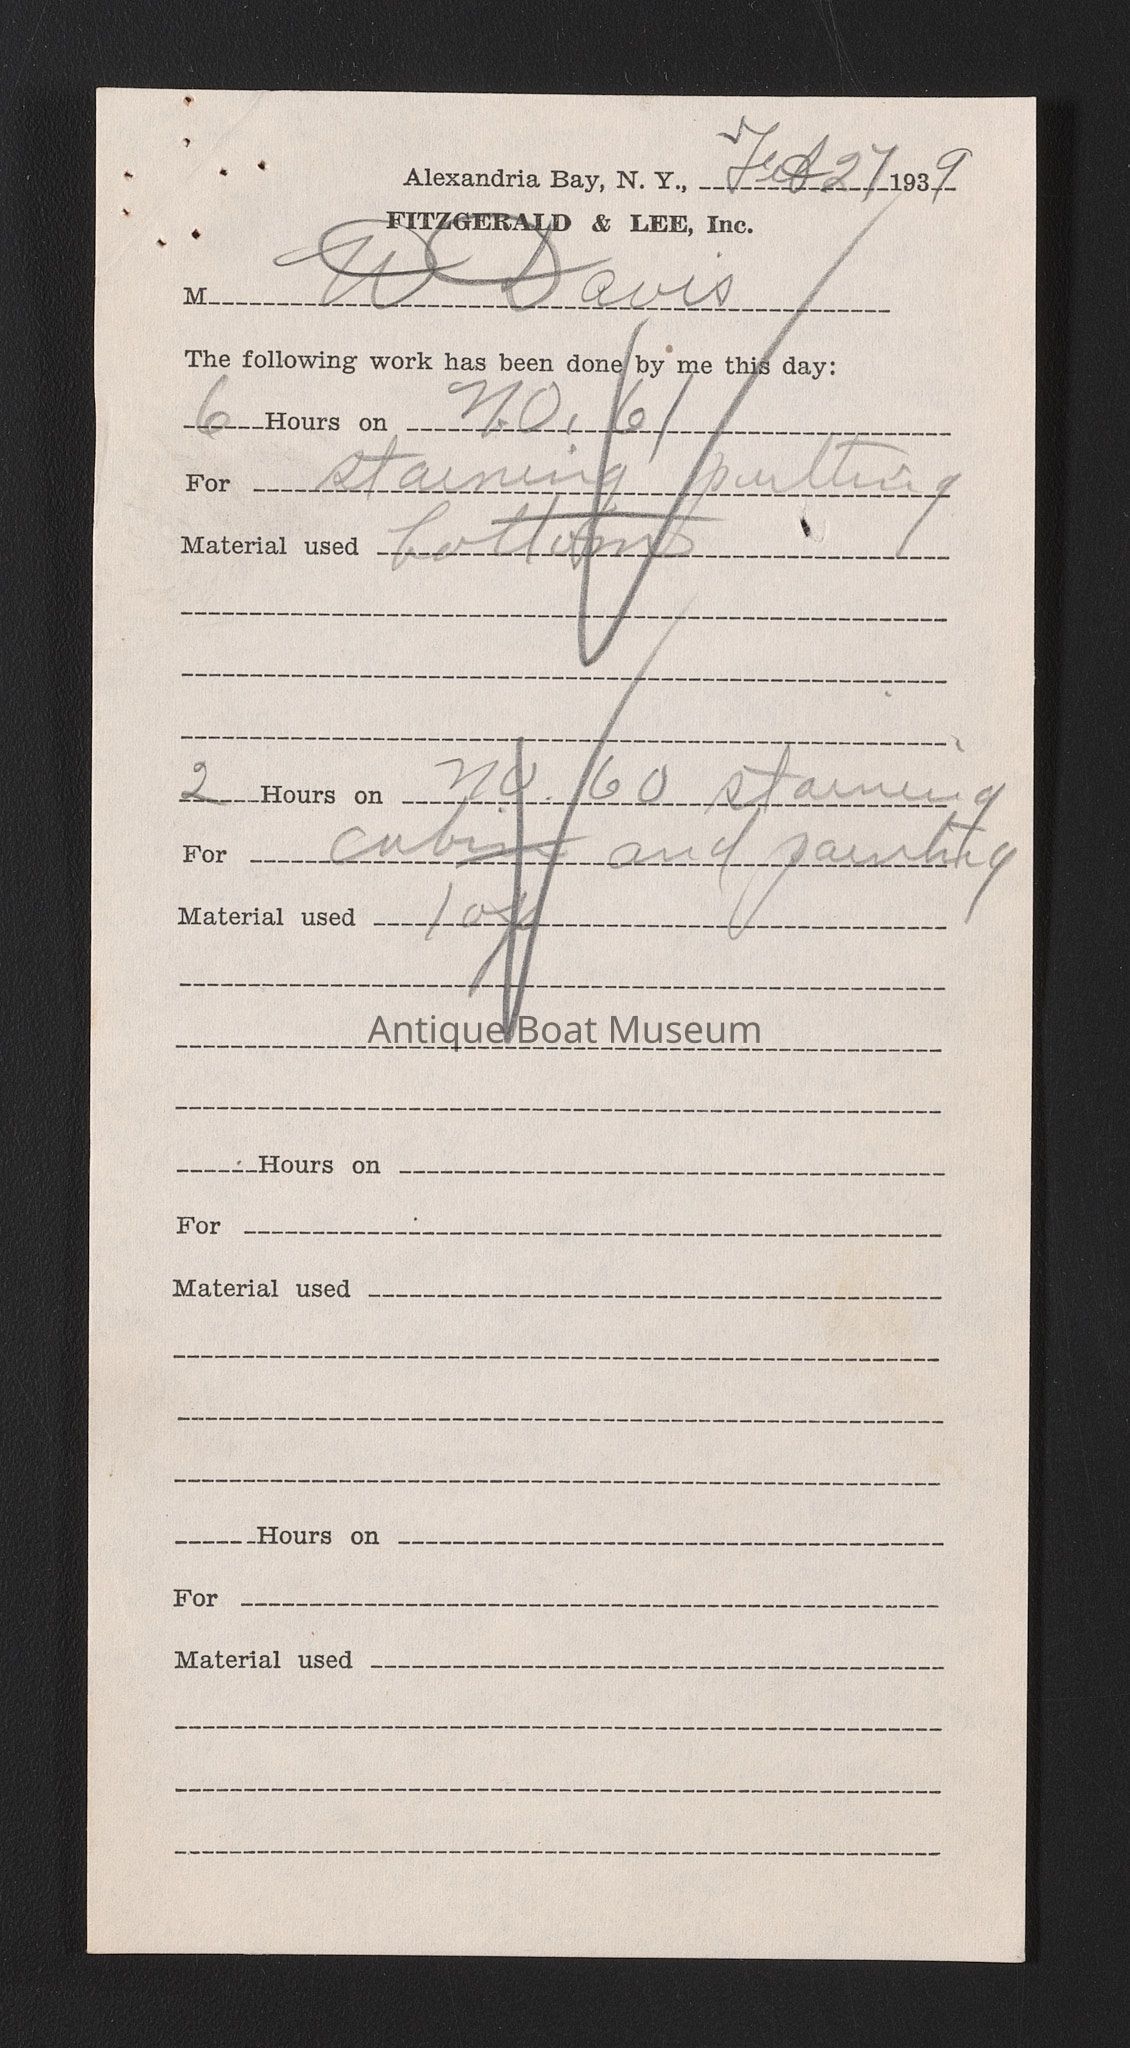 Alexandria Bay, N. Y., Feb 27 1939
FITZGERALD & LEE, Inc.
M W Davis
The following work has been done by me this day:
6 Hours on No. 61
For staining putting
Material used bottoms
2 Hours on No. 60 staining
For cabin and painting
Material used top
Antique Boat Museum
Hours on
For
Material used
Hours on
For
Material used